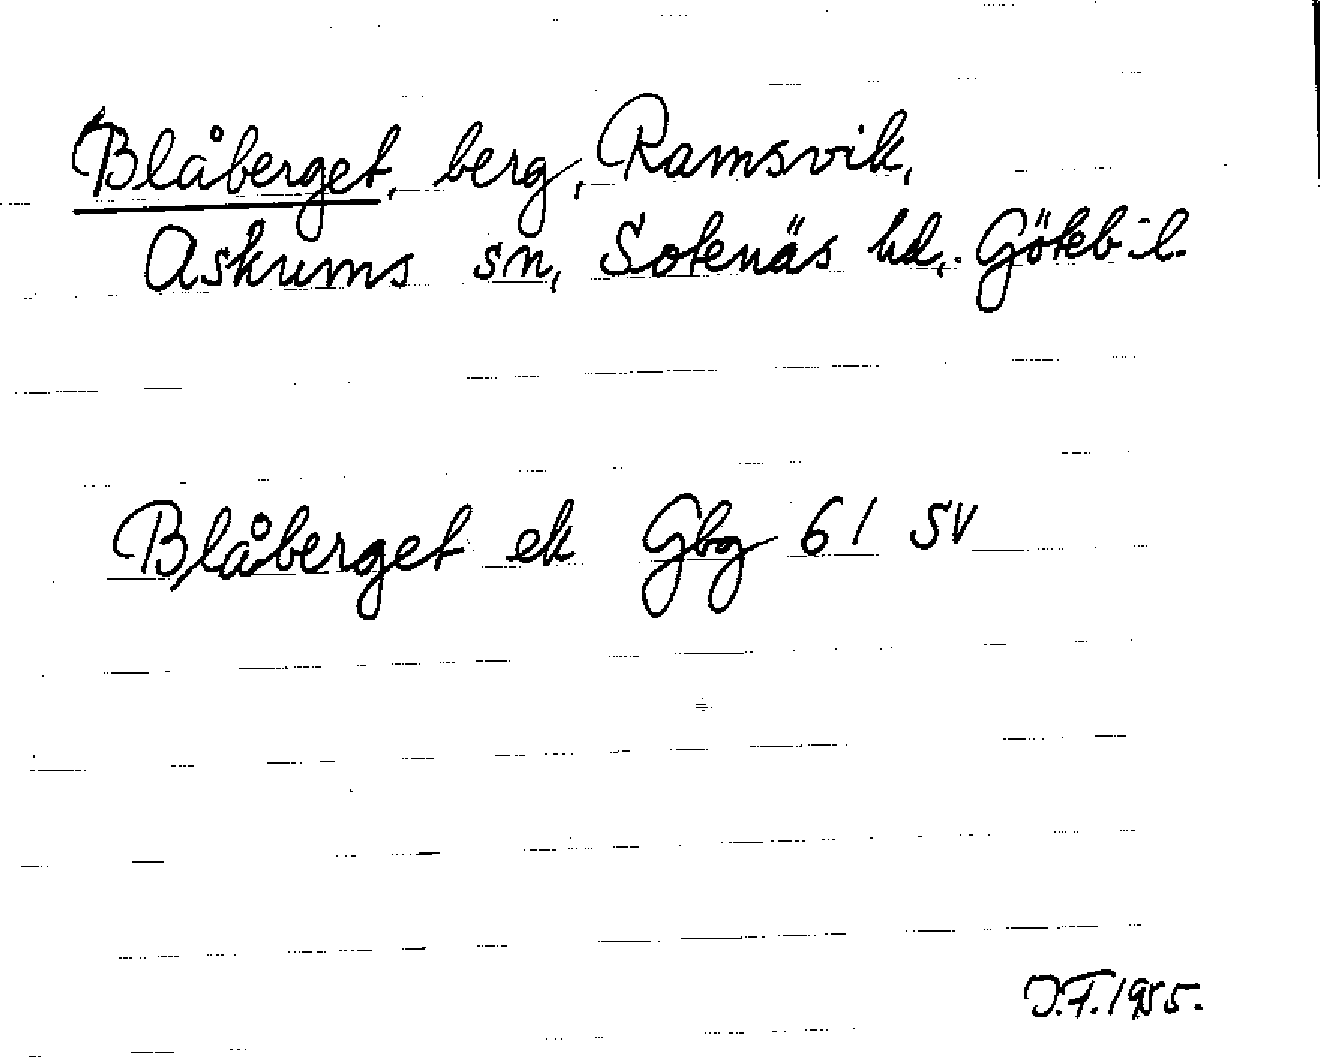 Blåberget, berg, Ramsvik,
Askums sn, Sotenäs hd, Göteb-l.
Blåberget ek Gbg 61 SV
J.F. 1955.